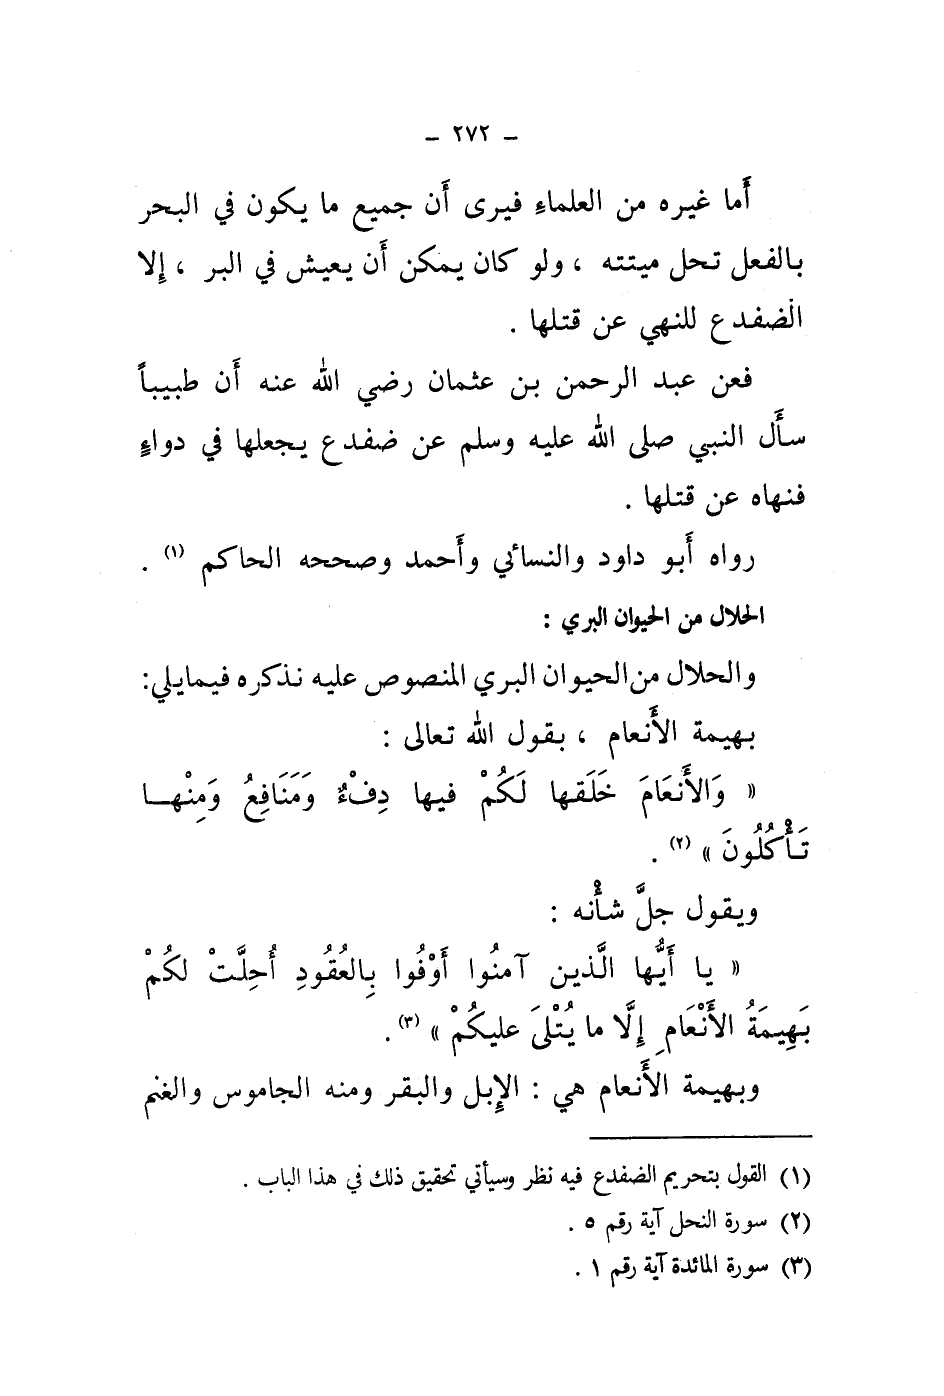 – ٢٧٢ –
أَما غيره من العلماءِ فيرى أَن جميع ما يكون في البحر
بالفعل تحل ميتته ، ولو كان يمكن أَن يعيش في البر ، إِلا
الضفدع للنهي عن قتلها .
فعن عبد الرحمن بن عثمان رضي الله عنه أَن طبيباً
سأَل النبي صلى الله عليه وسلم عن ضفدع يجعلها في دواءٍ
فنهاه عن قتلها .
رواه أَبو داود والنسائي وأَحمد وصححه الحاكم (١) .
الحلال من الحيوان البري :
والحلال من الحيوان البري المنصوص عليه نذكره فيمايلي:
بهيمة الأَنعام ، بقول الله تعالى :
« وَالأَنعَامَ خَلَقها لَكُمْ فيها دِفْءٌ وَمَنَافِعُ وَمِنْهـا
تَأْكُلُونَ » (٢) .
ويقول جلَّ شأْنه :
« يا أَيُّها الَّذين آمنُوا أَوْفُوا بِالعُقُودِ أُحِلَّتْ لكُمْ
بَهِيمَةُ الأَنْعَامِ إِلَّا ما يُتْلىَ عليكُمْ » (٣) .
وبهيمة الأَنعام هي : الإِبل والبقر ومنه الجاموس والغنم
(١) القول بتحريم الضفدع فيه نظر وسيأتي تحقيق ذلك في هذا الباب .
(٢) سورة النحل آية رقم ٥ .
(٣) سورة المائدة آية رقم ١ .